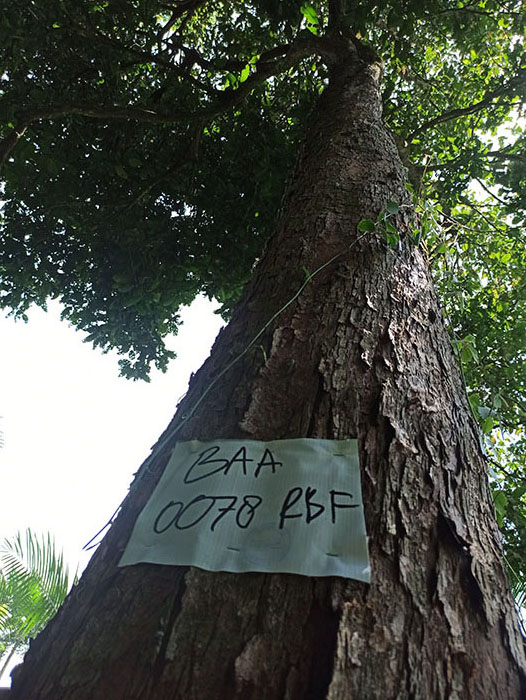 BAA
0078 RBF